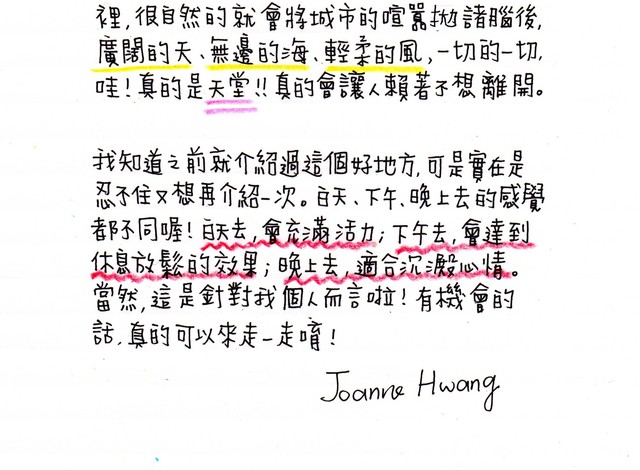 裡，很自然的就會將城市的喧囂拋諸腦後，
廣闊的天、無邊的海、輕柔的風，一切的一切，
哇！真的是天堂!!真的會讓人賴著不想離開。
我知道之前就介紹過這個好地方，可是實在是
忍不住又想再介紹一次。白天、下午、晚上去的感覺
都不同喔！白天去，會充滿活力；下午去，會達到
休息放鬆的效果；晚上去，適合沉澱心情。
當然，這是針對我個人而言啦！有機會的
話，真的可以來走一走唷！
Joanne Hwang